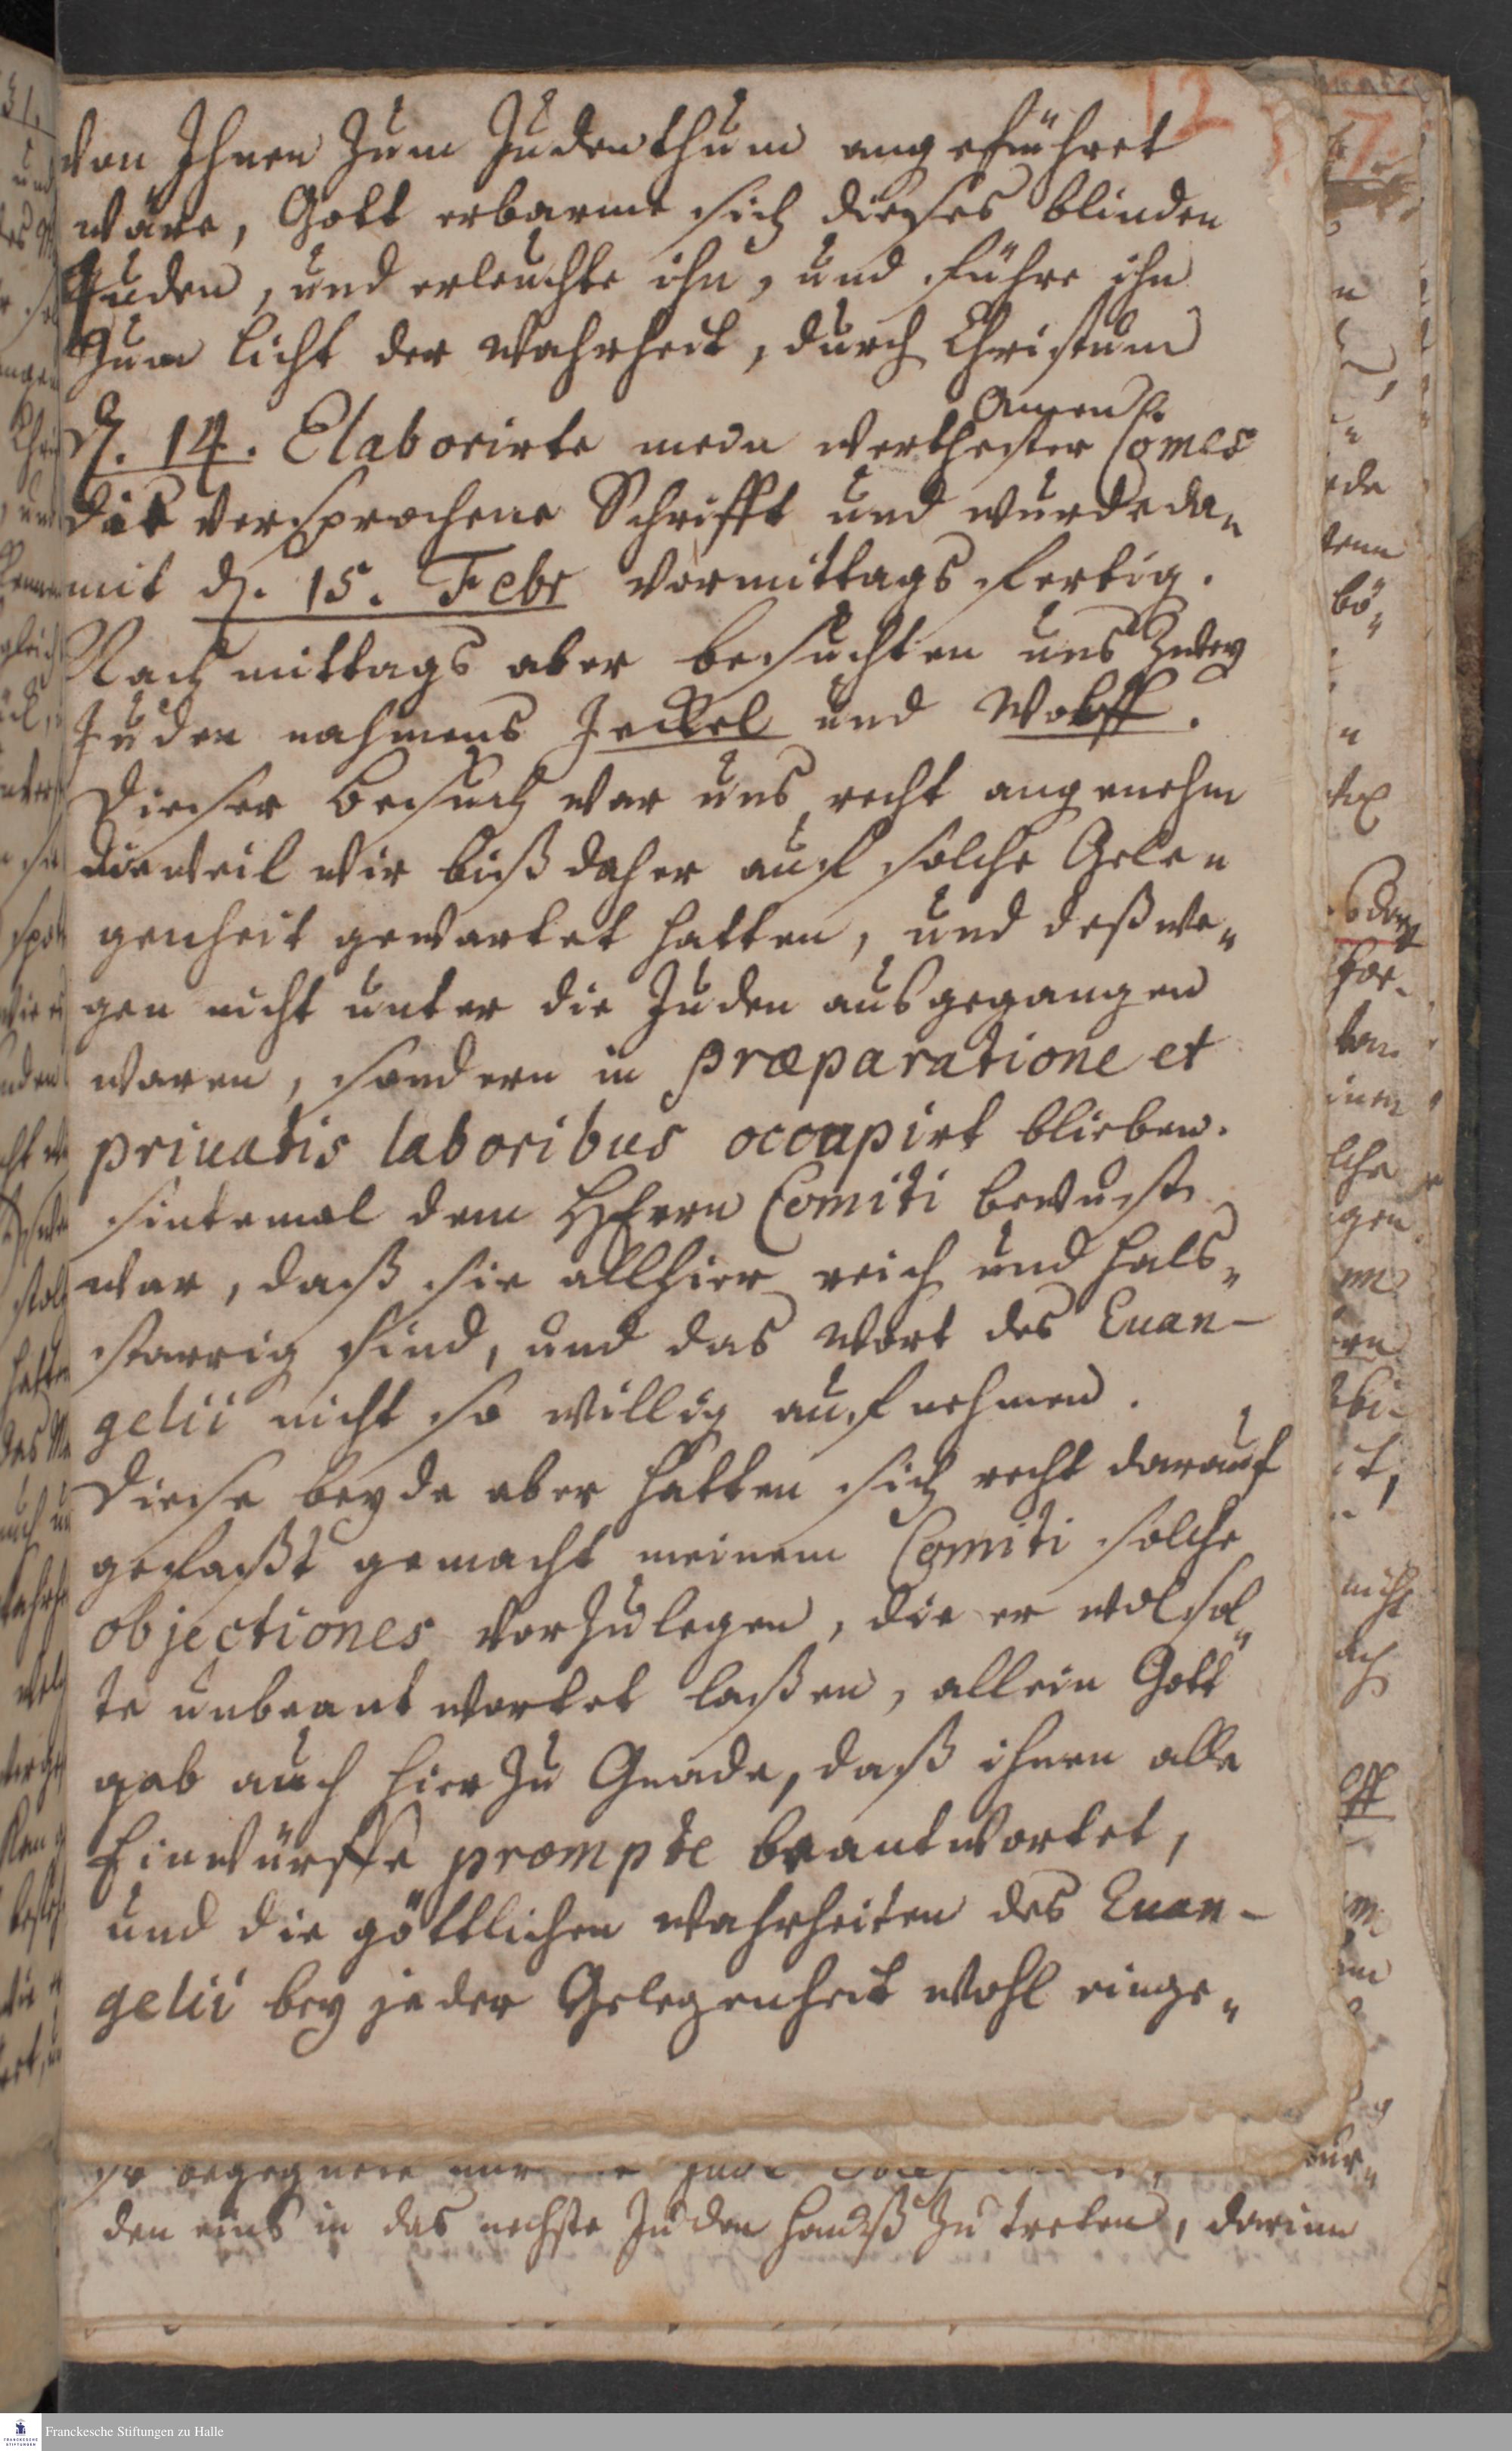 12
von Ihnen zum Judenthum angeführet
wäre, Gott erbarme sich dieses blinden
Juden, und erleuchte ihn, und führe ihn
zum licht der Wahrheit, durch Christum
Amen
d. 14. Elaborirte mein werthester Comes
die versprochene Schrifft und wurde da„
mit d. 15. Febr vormittags fertig.
Nachmittags aber besuchten uns zwey
Juden nahmens Jeckel und Wolff.
Dieser besuch war uns recht angenehm
dieweil wir bißdaher auf solche Gele„
genheit gewartet hatten, und deßwe„
gen nicht unter die Juden ausgegangen
waren, sondern in præparatione et
privatis laboribus occupirt blieben.
sintemal dem HErrn Comiti bewust
war, daß sie allhier reich und hals„
starrig sind, und das Wort des Euan-
gelii nicht so willig aufnehmen.
Diese beyde aber hatten sich recht darauf
gefaßt gemacht meinem Comiti solche
objectiones vorzulegen, die er wol sol„
te unbeantwortet laßen, allein Gott
gab auch hierzu Gnade, daß ihnen alle
Einwürffe prompte beantwortet,
und die göttlichen Wahrheiten des Euan-
gelii bey jeder Gelegenheit wohl einge„
so begegnete
den uns in das nechste Juden Hauß zu treten, darinn
Franckesche Stiftungen zu Halle